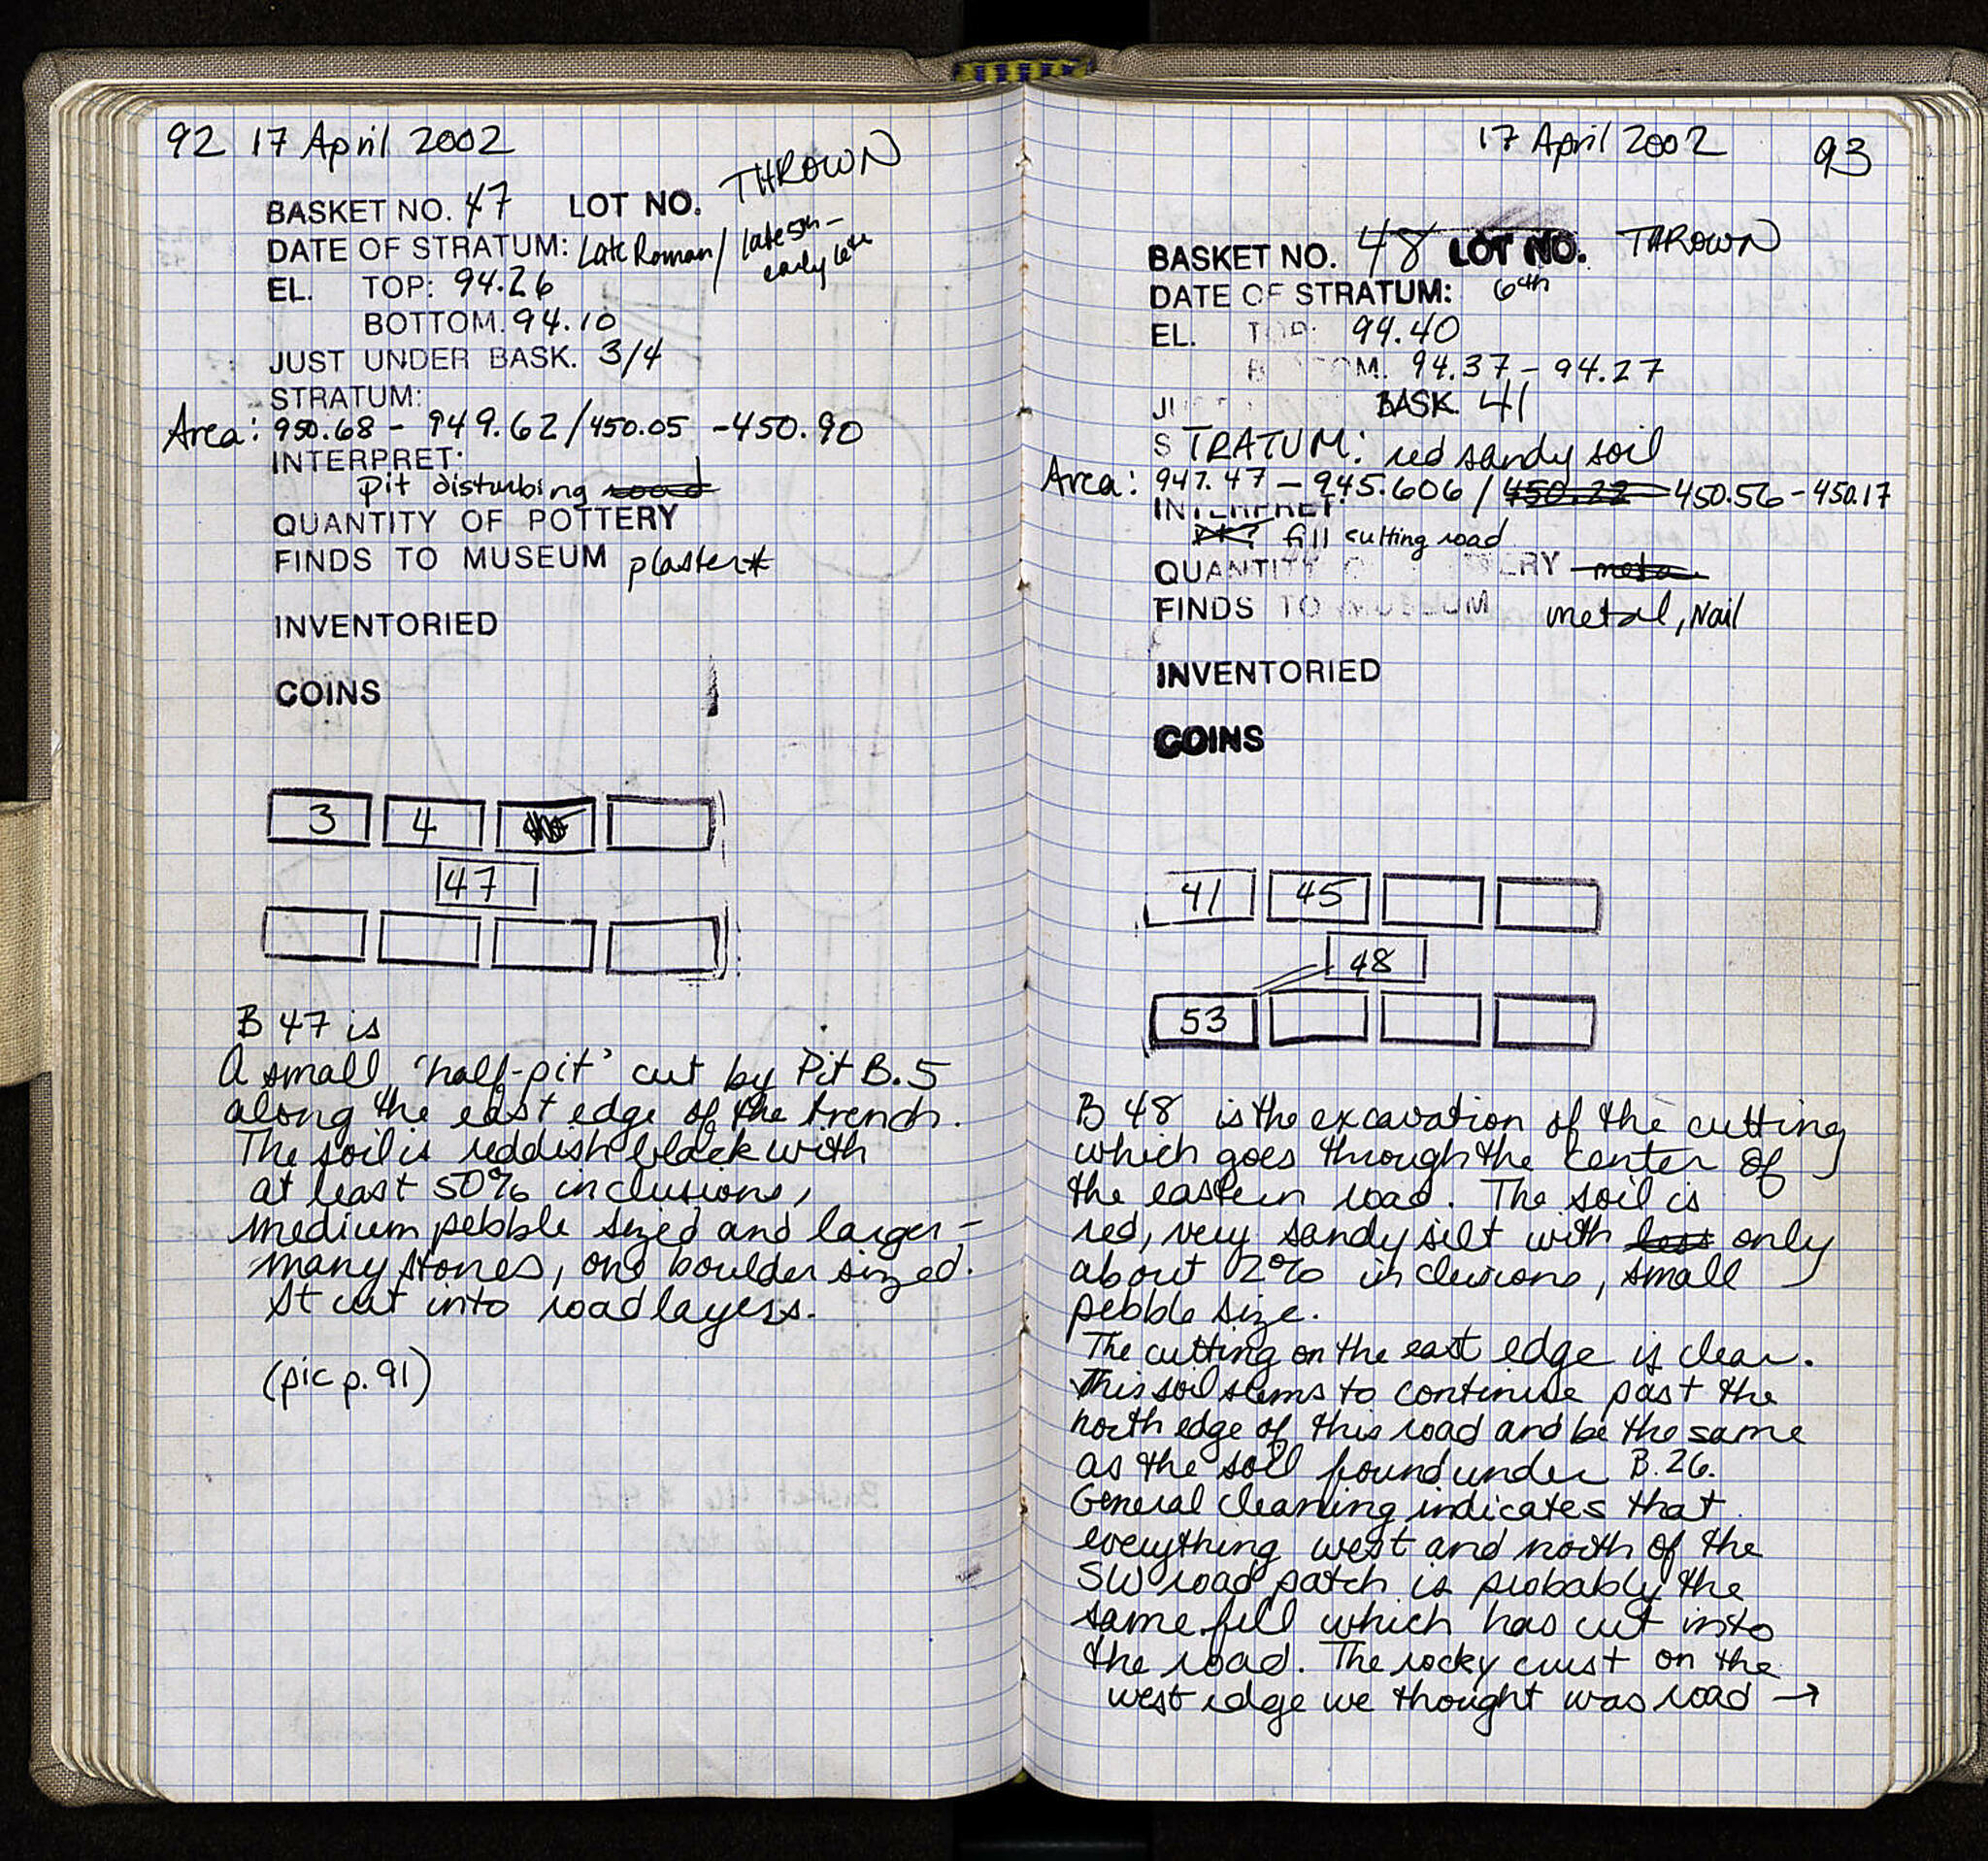 92 17 April 2002
BASKET NO. 47 LOT NO. THROWN
DATE OF STRATUM: Late Roman/ late 5th – early 6th
EL. TOP: 94.26
BOTTOM. 94.10
JUST UNDER BASK. 3/4
STRATUM:
Area: 950.68 - 949.62/450.05 -450.90
INTERPRET:
pit disturbing road
QUANTITY OF POTTERY
FINDS TO MUSEUM plaster*
INVENTORIED
COINS
3 4
47
B 47 is
A small 'half-pit' cut by Pit B.5
along the east edge of the trench.
The soil is reddish black with
at least 50% inclusions,
medium pebble sized and larger –
many stones, one boulder sized.
It cut into road layers.
(pic p. 91)
17 April 2002 93
BASKET NO. 48 LOT NO. THROWN
DATE OF STRATUM: 6th
EL. TOP: 94.40
BOTTOM. 94.37 - 94.27
BASK. 41
STRATUM: red sandy soil
Area: 947.47 - 945.606 / 450.22 450.56 - 450.17
INTERPRET
fill cutting road
QUANTITY OF POTTERY metal
FINDS TO MUSEUM metal, Nail
INVENTORIED
COINS
41 45
48
53
B 48 is the excavation of the cutting
which goes through the center of
the eastern road. The soil is
red, very sandy silt with less only
about 2% inclusions, small
pebble size.
The cutting on the east edge is clear.
This soil seems to continue past the
north edge of this road and be the same
as the soil found under B.26.
General cleaning indicates that
everything west and north of the
SW road patch is probably the
same fill which has cut into
the road. The rocky crust on the
west edge we thought was road →